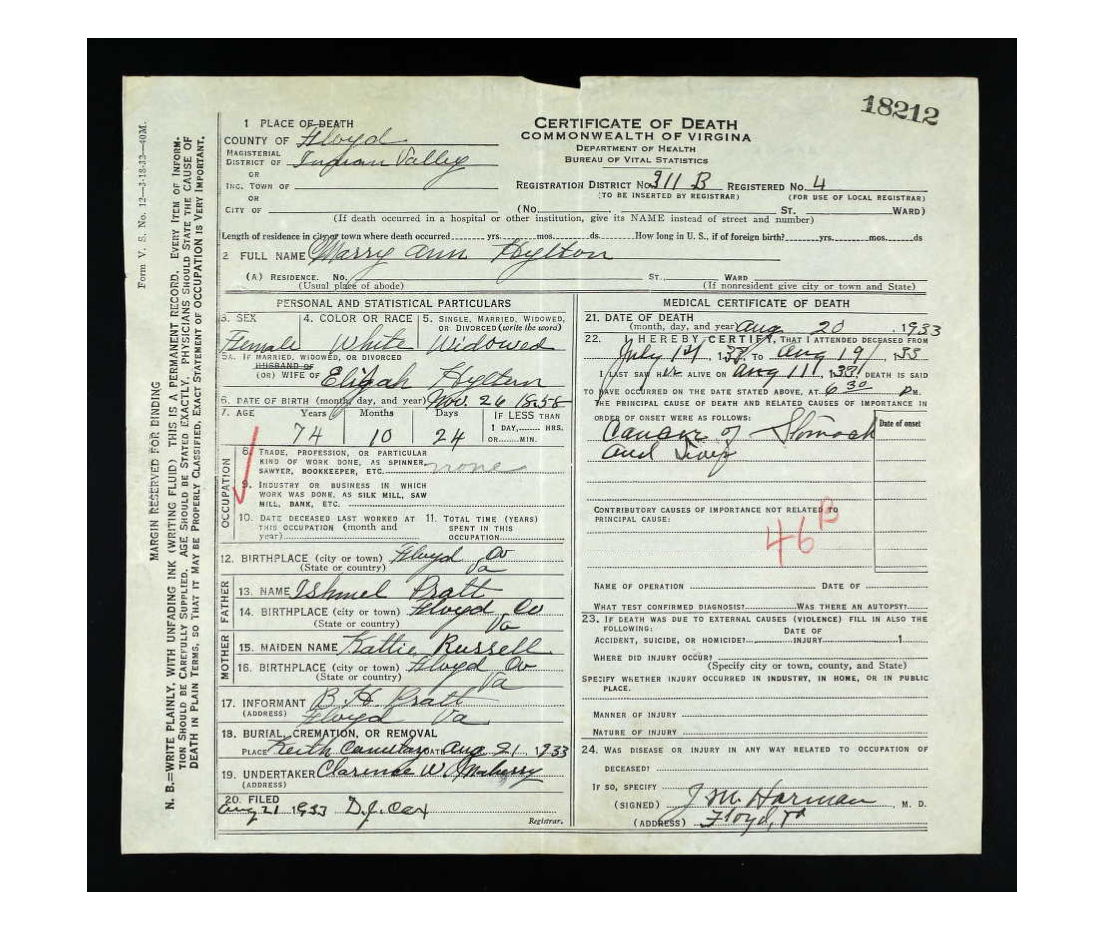 18212
Form V. S. No. 12—3-18-33—40M.
MARGIN RESERVED FOR BINDING
N. B.—WRITE PLAINLY, WITH UNFADING INK (WRITING FLUID) THIS IS A PERMANENT RECORD. EVERY ITEM OF INFORM-
TION SHOULD BE CAREFULLY SUPPLIED. AGE SHOULD BE STATED EXACTLY. PHYSICIANS SHOULD STATE THE CAUSE OF
DEATH IN PLAIN TERMS, SO THAT IT MAY BE PROPERLY CLASSIFIED. EXACT STATEMENT OF OCCUPATION IS VERY IMPORTANT.
1 PLACE OF DEATH
COUNTY OF Floyd
MAGISTERIAL
DISTRICT OF Indian Valley
OR
INC. TOWN OF
OR
CITY OF
CERTIFICATE OF DEATH
COMMONWEALTH OF VIRGINA
DEPARTMENT OF HEALTH
BUREAU OF VITAL STATISTICS
REGISTRATION DISTRICT No. 311 B REGISTERED No. 4
(TO BE INSERTED BY REGISTRAR) (FOR USE OF LOCAL REGISTRAR)
(No. ST. WARD)
(If death occurred in a hospital or other institution, give its NAME instead of street and number)
Length of residence in city or town where death occurred yrs. mos. ds. How long in U. S., if of foreign birth? yrs. mos. ds
2 FULL NAME Marry Ann Hylton
(A) RESIDENCE. No. ST. WARD
(Usual place of abode) (If nonresident give city or town and State)
PERSONAL AND STATISTICAL PARTICULARS
3. SEX 4. COLOR OR RACE 5. SINGLE, MARRIED, WIDOWED,
OR DIVORCED (write the word)
Female White Widowed
5A. IF MARRIED, WIDOWED, OR DIVORCED
HUSBAND OF
(OR) WIFE OF Elijah Hylton
6. DATE OF BIRTH (month, day, and year) Nov. 26 1858
7. AGE Years Months Days IF LESS THAN
1 DAY, HRS.
OR MIN.
74 10 24
OCCUPATION
8. TRADE, PROFESSION, OR PARTICULAR
KIND OF WORK DONE, AS SPINNER,
SAWYER, BOOKKEEPER, ETC. none
9. INDUSTRY OR BUSINESS IN WHICH
WORK WAS DONE, AS SILK MILL, SAW
MILL, BANK, ETC.
10. DATE DECEASED LAST WORKED AT 11. TOTAL TIME (YEARS)
THIS OCCUPATION (month and SPENT IN THIS
year) OCCUPATION
12. BIRTHPLACE (city or town) Floyd Co
(State or country) Va
FATHER
13. NAME Ishmel Pratt
14. BIRTHPLACE (city or town) Floyd Co
(State or country) Va
MOTHER
15. MAIDEN NAME Kattie Russell
16. BIRTHPLACE (city or town) Floyd Co
(State or country) Va
17. INFORMANT B. H. Pratt
(ADDRESS) Floyd Va
18. BURIAL, CREMATION, OR REMOVAL
PLACE Keith Cemetary DATE Aug 21, 1933
19. UNDERTAKER Clarence W
(ADDRESS)
20. FILED
Aug 21 1933 D.J. Cox
Registrar.
MEDICAL CERTIFICATE OF DEATH
21. DATE OF DEATH
(month, day, and year) Aug 20, 1933
22. I HEREBY CERTIFY, THAT I ATTENDED DECEASED FROM
July 1st, 33, TO Aug 19, 33
I LAST SAW her ALIVE ON Aug 33, DEATH IS SAID
TO HAVE OCCURRED ON THE DATE STATED ABOVE, AT 6 30 P M.
THE PRINCIPAL CAUSE OF DEATH AND RELATED CAUSES OF IMPORTANCE IN
ORDER OF ONSET WERE AS FOLLOWS: Date of onset
Cancer of Stomach
and Liver
CONTRIBUTORY CAUSES OF IMPORTANCE NOT RELATED TO
PRINCIPAL CAUSE:
46 B
NAME OF OPERATION DATE OF
WHAT TEST CONFIRMED DIAGNOSIS? WAS THERE AN AUTOPSY?
23. IF DEATH WAS DUE TO EXTERNAL CAUSES (VIOLENCE) FILL IN ALSO THE
FOLLOWING: DATE OF
ACCIDENT, SUICIDE, OR HOMICIDE? INJURY 1
WHERE DID INJURY OCCUR?
(Specify city or town, county, and State)
SPECIFY WHETHER INJURY OCCURRED IN INDUSTRY, IN HOME, OR IN PUBLIC
PLACE.
MANNER OF INJURY
NATURE OF INJURY
24. WAS DISEASE OR INJURY IN ANY WAY RELATED TO OCCUPATION OF
DECEASED?
IF SO, SPECIFY
(SIGNED) J M. Harman, M. D.
(ADDRESS) Floyd, Va